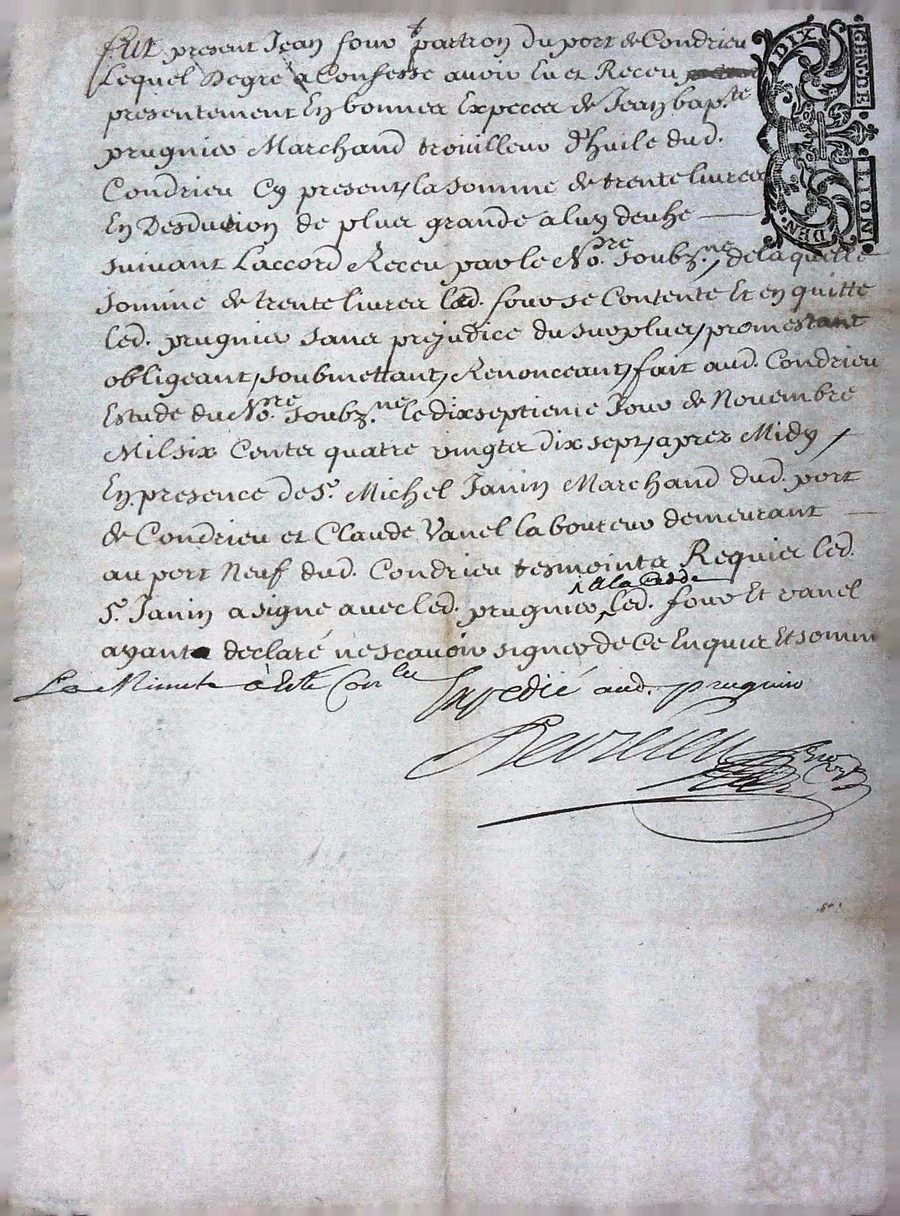 fut present Jean four patron du port de Condrieu
Lequel de gre a Confesse avoir Eu et Receu
presentement En bonnes Especes de Jean bap.te
prugnier Marchand trouilleur d'huile dud.
Condrieu Cy present, la somme de trente livres
En Desduction de plus grande a luy deuhe
suivant Laccord Receu par le No.re soubz.ne, de laquelle
somme de trente livres led. four se Contente Et en quitte
led. prugnier sans prejudice du surplus, promettant
obligeant, soubmettant, Renonceant, fait aud. Condrieu
Estude du No.re soubz.ne le dixseptieme Jour de Novembre
Mil six Cents quatre vingts dix sept, apres Midy
En presence de S.r Michel Janin Marchand dud. port
de Condrieu et Claude Vanel laboureur demeurant
au port Neuf dud. Condrieu tesmoints Requis led.
S.r Janin a signe avec led. prugnier, led. four Et vanel
ayant declaré ne scavoir signer de ce Enquis Et somm
La Minute
Expedié aud. prugnier
DIX DEN.
GEN. DE LION